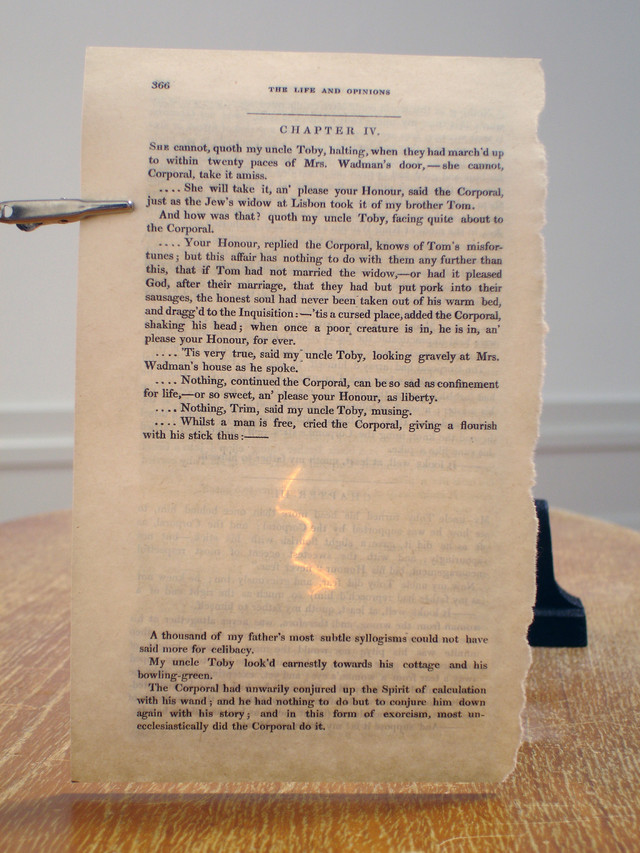 366
THE LIFE AND OPINIONS
CHAPTER IV.
SHE cannot, quoth my uncle Toby, halting, when they had march'd up
to within twenty paces of Mrs. Wadman's door,—she cannot,
Corporal, take it amiss.
.... She will take it, an' please your Honour, said the Corporal,
just as the Jew's widow at Lisbon took it of my brother Tom.
And how was that? quoth my uncle Toby, facing quite about to
the Corporal.
.... Your Honour, replied the Corporal, knows of Tom's misfor-
tunes; but this affair has nothing to do with them any further than
this, that if Tom had not married the widow,—or had it pleased
God, after their marriage, that they had but put pork into their
sausages, the honest soul had never been taken out of his warm bed,
and dragg'd to the Inquisition:—'tis a cursed place, added the Corporal,
shaking his head; when once a poor creature is in, he is in, an'
please your Honour, for ever.
.... 'Tis very true, said my uncle Toby, looking gravely at Mrs.
Wadman's house as he spoke.
.... Nothing, continued the Corporal, can be so sad as confinement
for life,—or so sweet, an' please your Honour, as liberty.
.... Nothing, Trim, said my uncle Toby, musing.
.... Whilst a man is free, cried the Corporal, giving a flourish
with his stick thus:——
A thousand of my father's most subtle syllogisms could not have
said more for celibacy.
My uncle Toby look'd earnestly towards his cottage and his
bowling-green.
The Corporal had unwarily conjured up the Spirit of calculation
with his wand; and he had nothing to do but to conjure him down
again with his story; and in this form of exorcism, most un-
ecclesiastically did the Corporal do it.